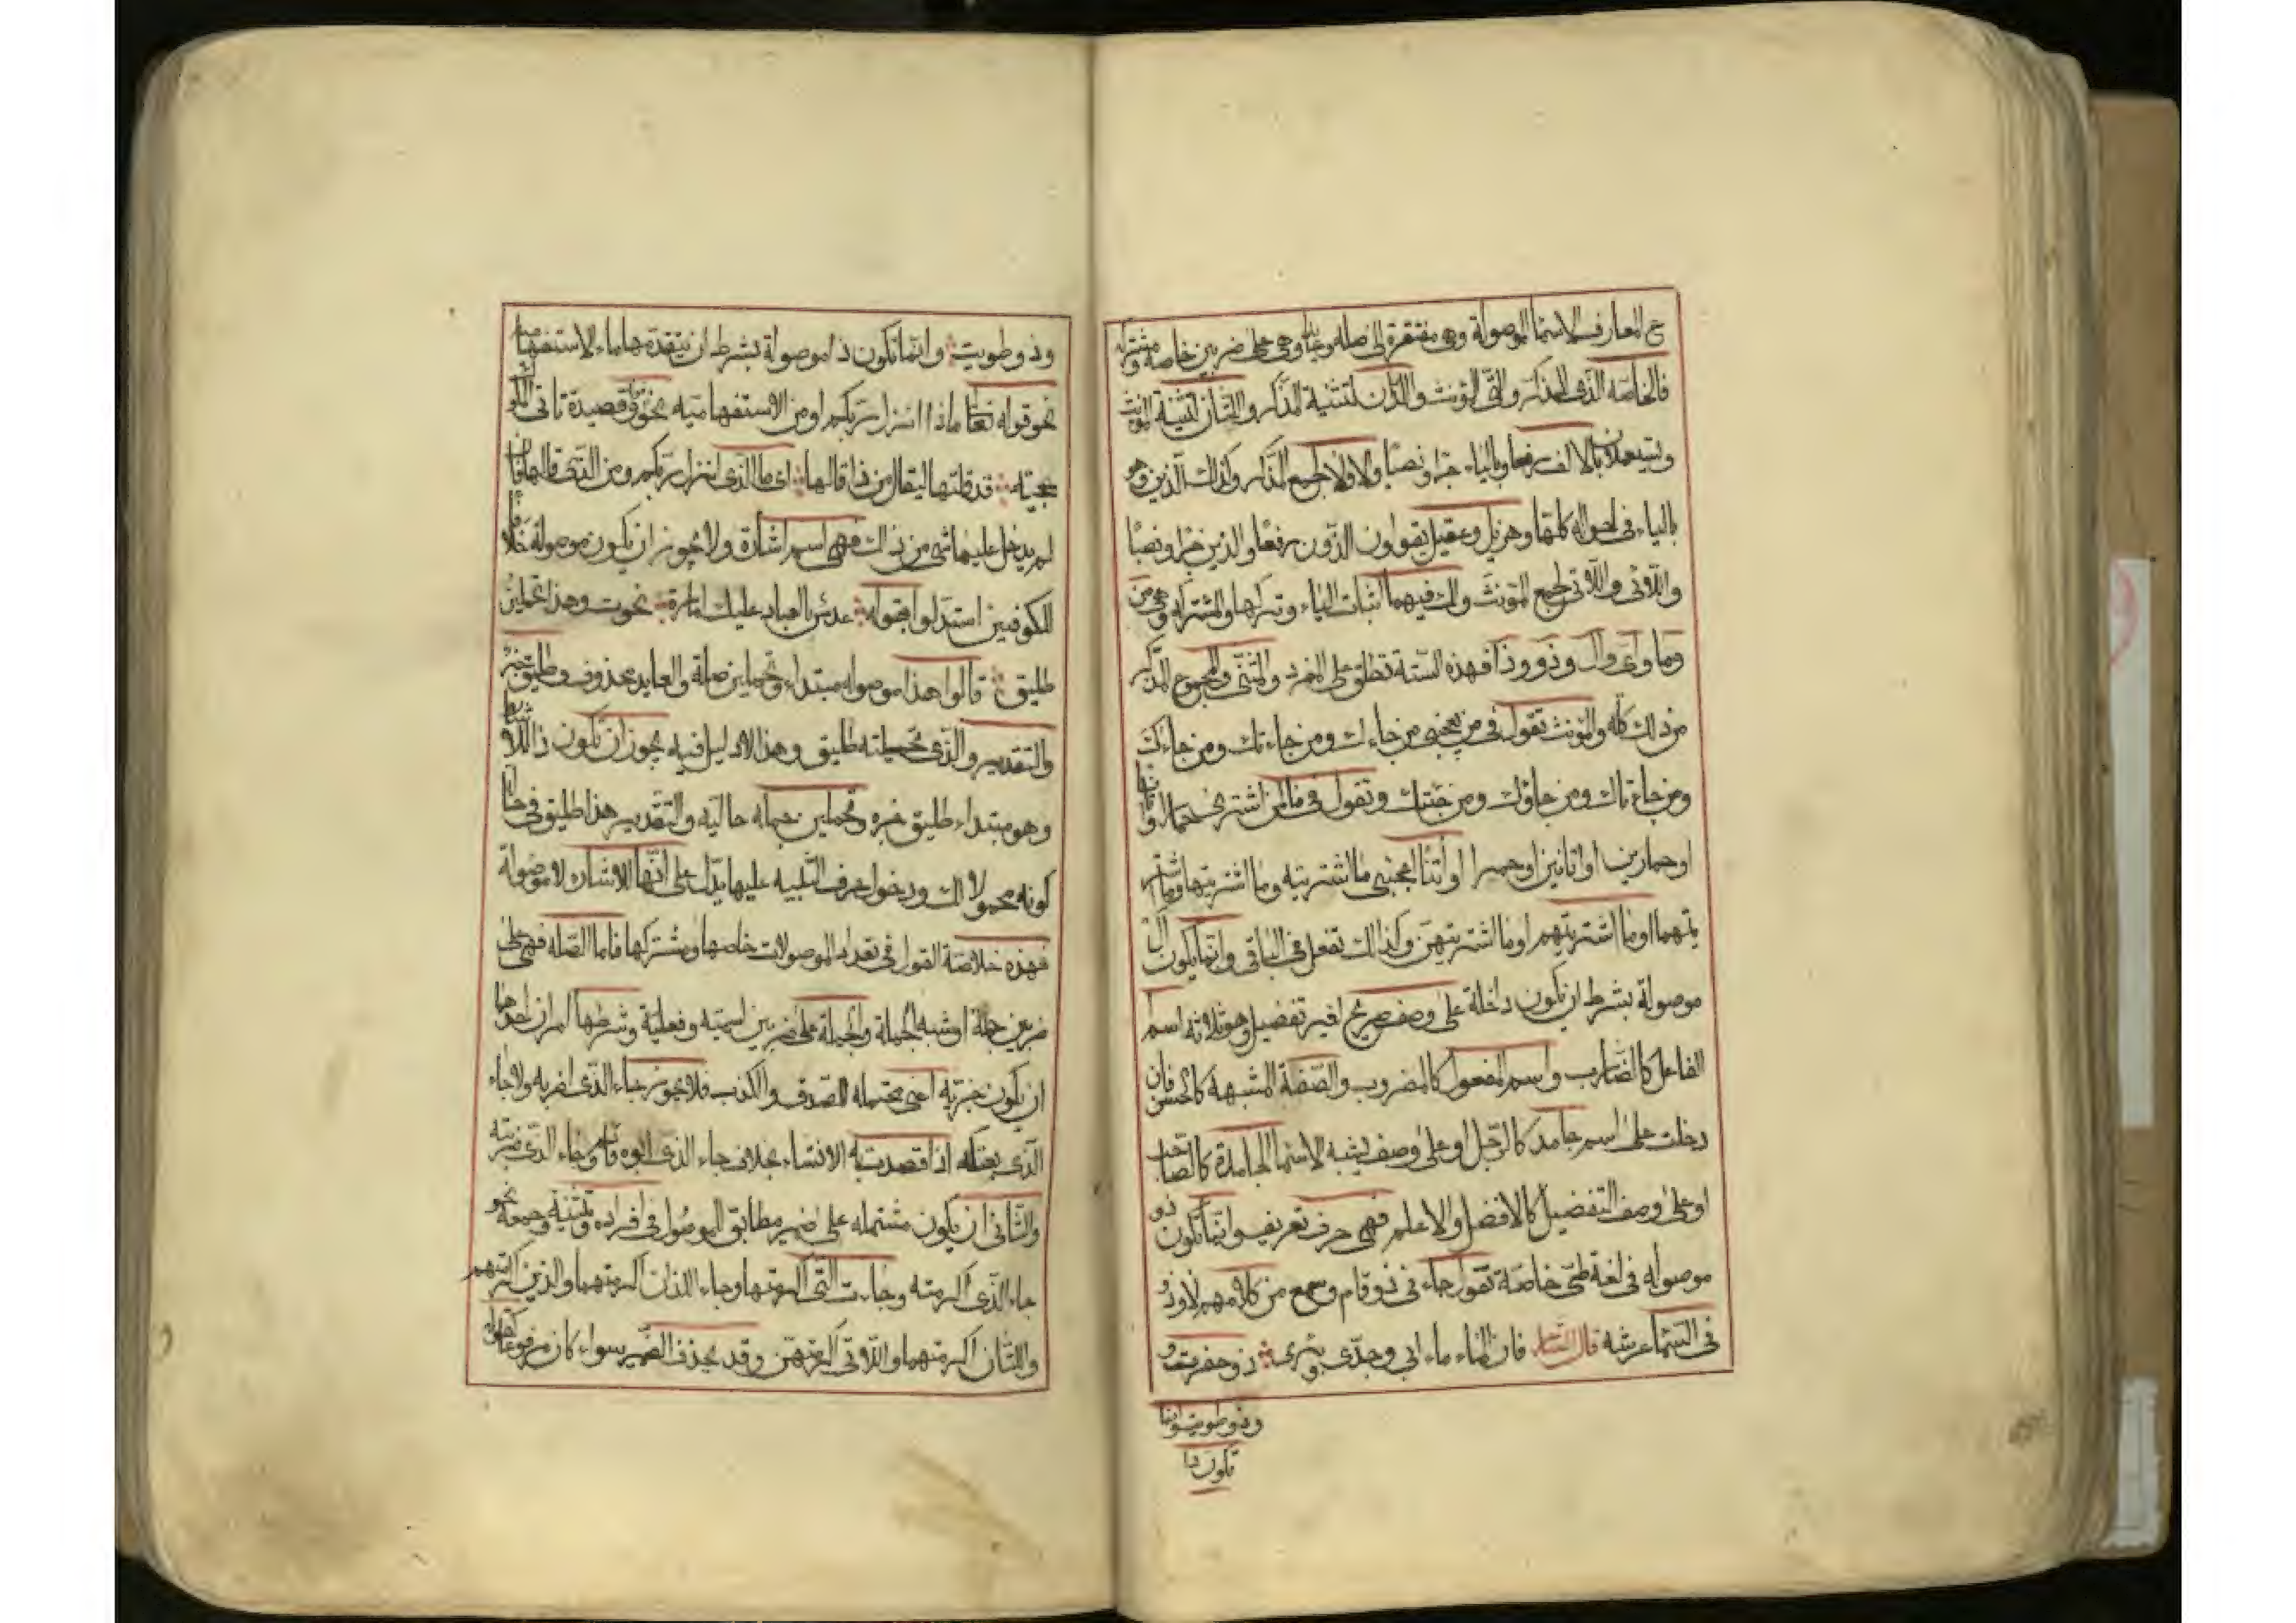 ع المعارف الاسما الموصولة وهى مفتقرة إلى صله وعايد وهى على ضربين خاصة ومشتركة
فالخاصه الذى للمذكر والتى للمؤنث واللذان لتثنية المذكر واللتان لتثنية المونث
ويستعملان بالالف رفعا وبالياء جرا ونصبا والاولا لجمع المذكر وكذلك الذين وهو
بالياء فى احواله كلها وهزيل وعقيل يقولون الذون رفعا والذين جرا ونصبا
واللائى واللاتى لجمع المؤنث ولك فيهما اثبات الياء وتركها والمشتركه وهى من
وما واى وال وذو وذا فهذه الستة تطلق على المفرد والمثنى والمجموع المذكر
من ذلك كله والمؤنث تقول فى من يعجبنى من جاءك ومن جاءتك ومن جاءك
ومن جاءتاك ومن جاؤك ومن جئنك وتقول فى ما لمن اشترى حمارا او اتانا
او حمارين او اتانين او حمرا او أتنا اعجبنى ما اشتريته وما اشتريتها وما اشتر
يتهما او ما اشتريتهم او ما اشتريتهن وكذلك تفعل فى الباقى وانما يكون ال
موصولة بشرط ان تكون داخلة على وصف صريح لغير تفضيل وهو ثلاثه اسم
الفاعل كالضارب واسم المفعول كالمضروب والصفة المشبهة كالحسن فان
دخلت على اسم جامد كالرجل او على وصف يشبه الاسما الجامدة كالصاحب
او على وصف التفضيل كالافضل والاعلم فهى حرف تعريف وانما تكون ذو
موصوله فى لغة طى خاصة تقول جاء فى ذو قام وسمع من كلامهم لا وذو
فى السما عرشه قال الشاعر فان الماء ماء ابى وجدى وبئرى ذو حفرت و
وذو طويت وانما
تكون ذا
وذو طويت وانما تكون ذا موصولة بشرط ان يتقدمها ماء الاستفهامية
نحو قوله تعا ماذا انزل ربكم او من الاستفهاميه نحو قوله وقصيدة تاتى الملوك
عجيبة قد قلتها ليقال من ذا قالها اى ما الذى انزل ربكم ومن الذى قالها فان
لم يدخل عليها شى من ذلك فهى اسم اشارة ولا يجوز ان تكون موصولة خلافا
للكوفيين استدلوا بقوله عدس ما لعباد عليك امارة نجوت وهذا تحملين
طليق قالوا هذا موصوله مبتداء وتحملين صلة والعايد محذوف وطليق خبر
والتقدير والذى تحملينه طليق وهذا لا دليل فيه يجوز ان تكون ذا للاشارة
وهو مبتداء طليق خبره وتحملين جمله حاليه والتقدير هذا طليق فى حال
كونه محمولا لك ودخول حرف التنبيه عليها يدل على انها للاشاره لا موصولة
فهذه خلاصة القول فى تعداد الموصولات خاصها ومشتركها فاما الصله فهى على
ضربين جملة او شبه الجملة والجملة على ضربين اسمية وفعلية وشرطها امران احدهما
ان تكون خبريه اعنى محتمله للصدق والكذب فلا يجوز جاء الذى اضربه ولا جاء
الذى بعتكه اذا قصدت به الانشاء بخلاف جاء الذى ابوه قايم وجاء الذى ضربته
والثانى ان يكون مشتمله على ضمير مطابق للموصول فى افراده وتثنيته وجمعه نحو
جاء الذى اكرمته وجاءت التى اكرمتها وجاء اللذان اكرمتهما والذين اكرمتهم
واللتان اكرمتهما واللاتى اكرمتهن وقد يحذف الضمير سواء كان مرفوعا نحو